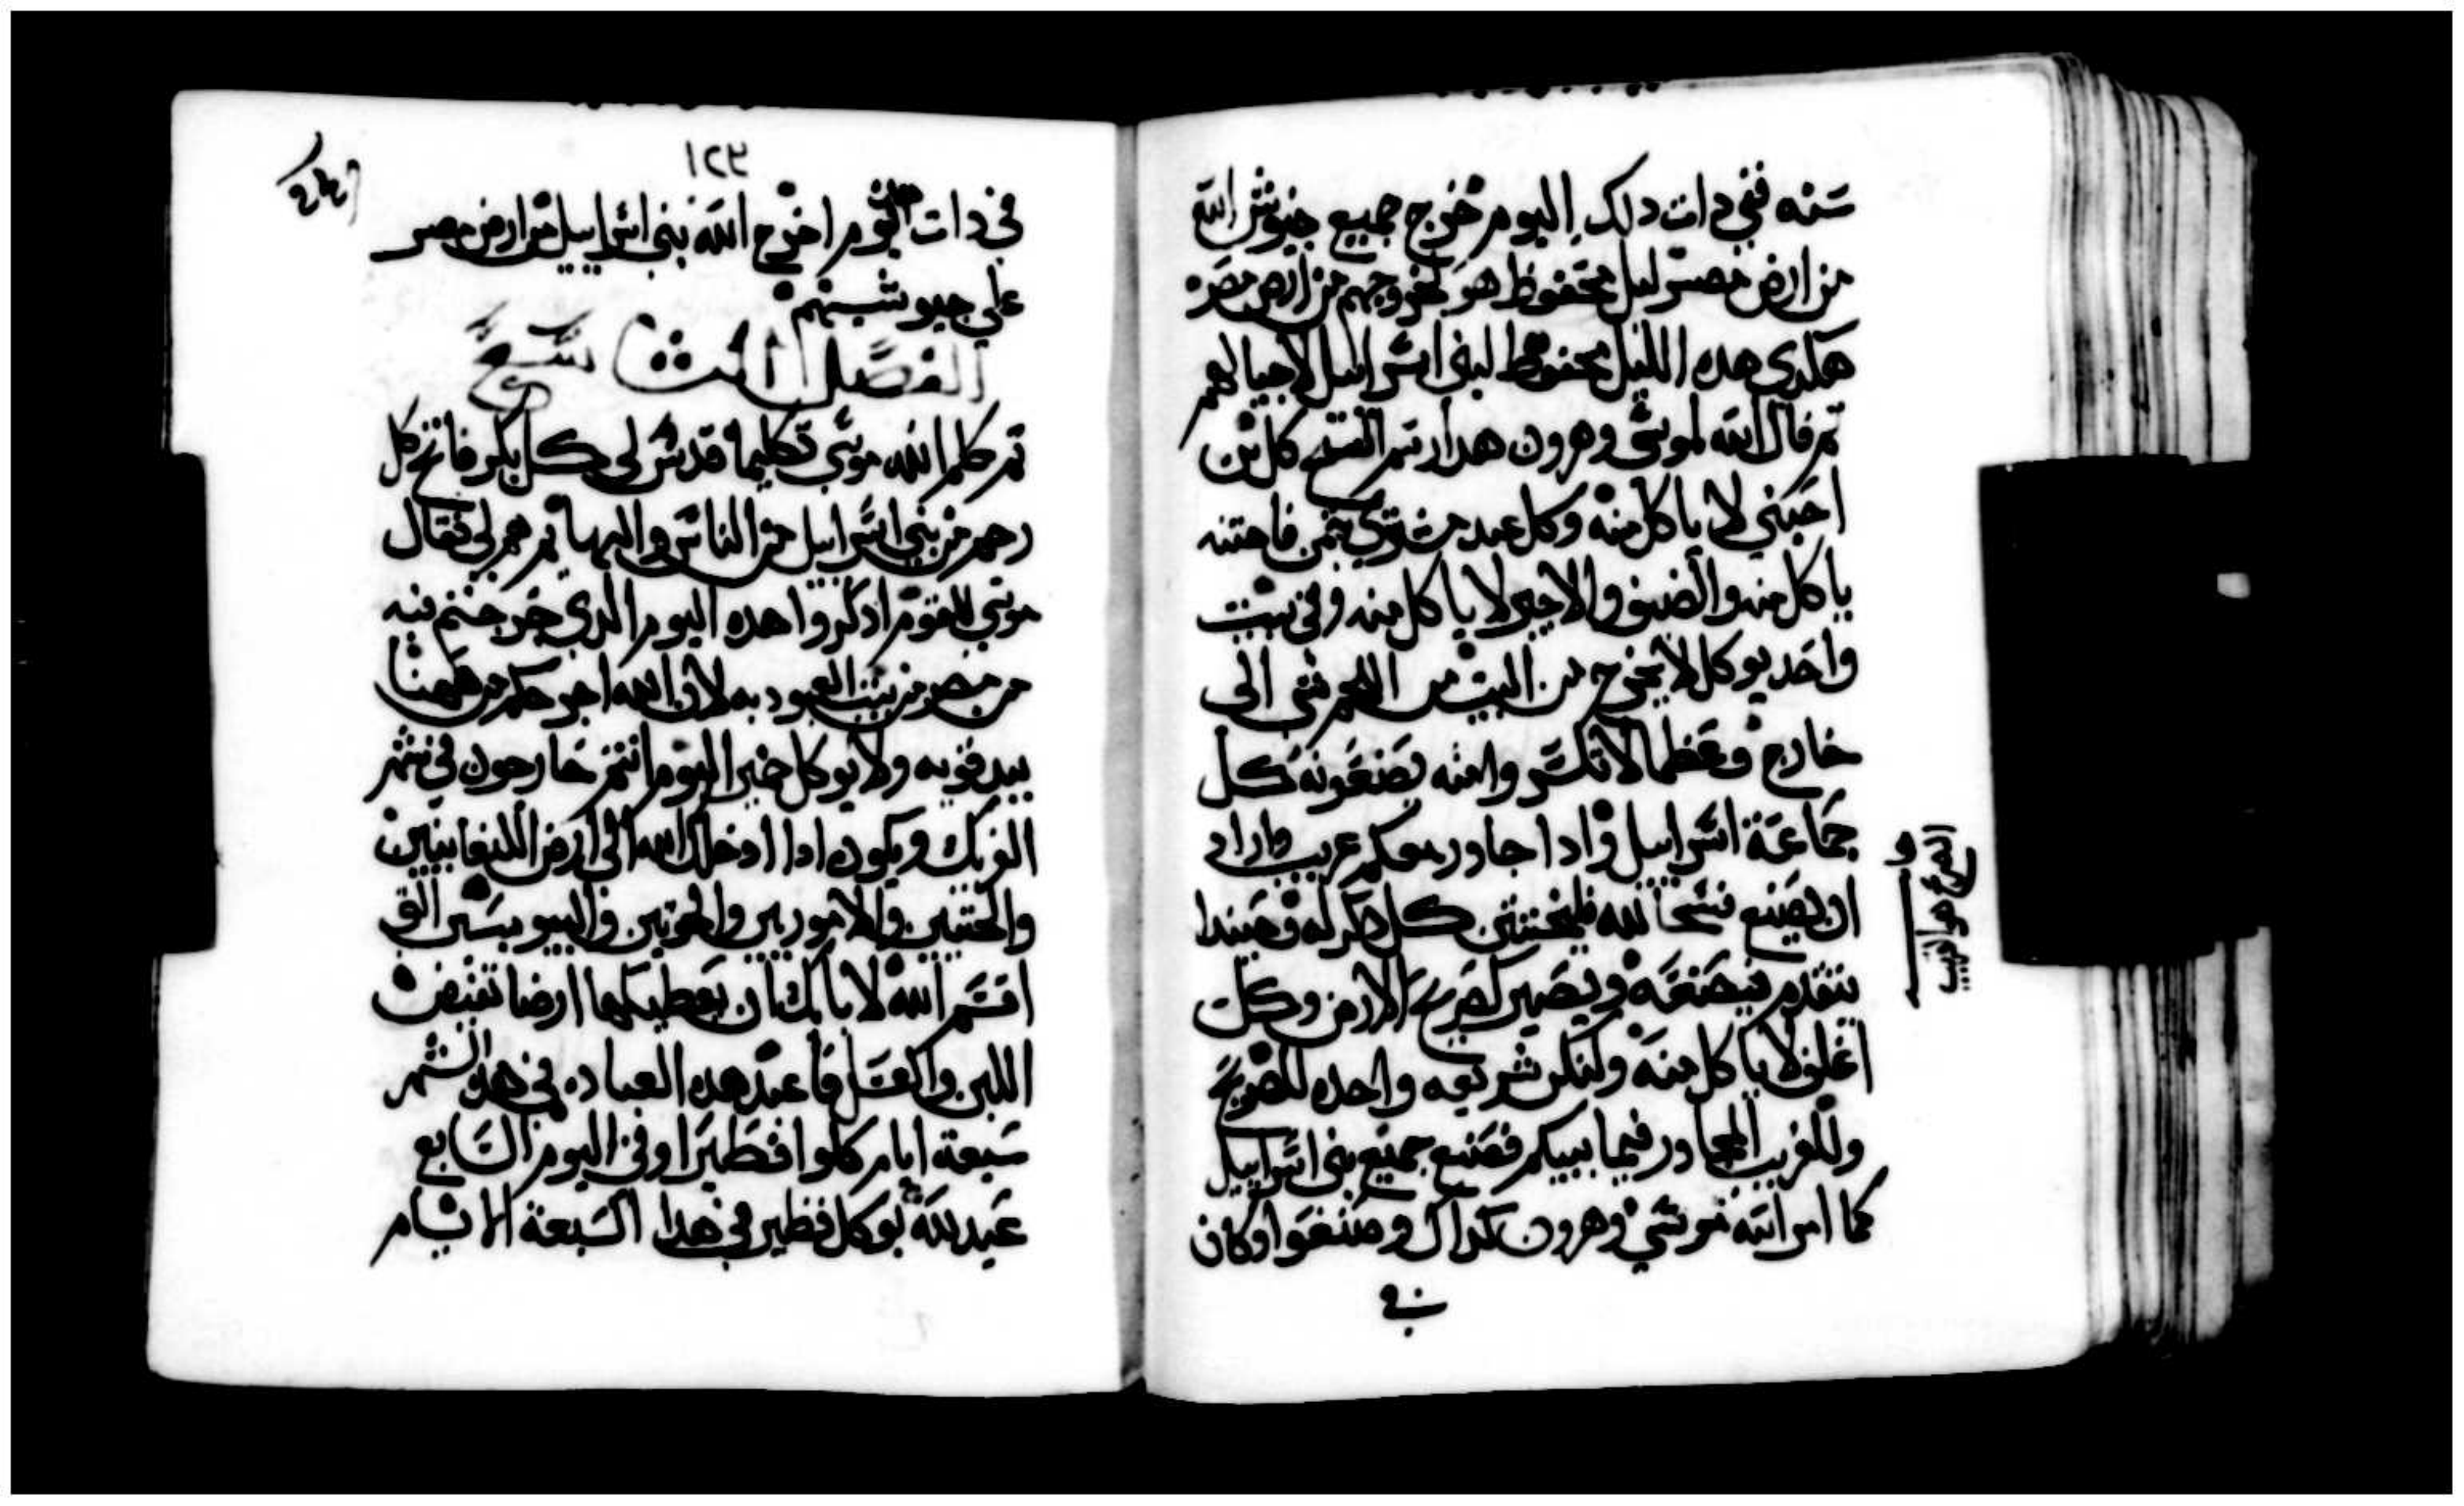 سنه ففي دات دلك اليوم خرج جميع جيوش الله
من ارض مصر ليل محفوظ هو لخروجهم من ارض مصر
هكدى هده الليل محفوظ لبني اسراييل لاجيالهم
تم قال الله لموسى وهرون هدا رسم الفسح كل بن
اجنبي لا ياكل منه وكل عبد مشتري بثمن فاختنه
ياكل منه والضيف والاجير لا ياكل منه وفي بيت
واحد يوكل لا يخرج من البيت من اللحم شي الى
خارج وعظما لا تكسر وامنه يصنعونه كل
جماعة اسراييل وادا جاور معكم غريب واراد
ان يصنع فسحا لله فليختتن كل دكر له وحينيدا
يتقدم فيصنعه ويصير كصريح الارض وكل
اغلف لا ياكل منه ولتكن شريعه واحده للصريح
وللغريب المجاور فيما بينكم فصنع جميع بني اسراييل
كما امر الله موسى وهرون كداك وصنعوا وكان
في
الصريح هو القريب
١٢٣
في دات اليوم اخرج الله بني اسراييل من ارض مصر
على جيوشهم
الفصل الثالث عشر
تم كلم الله موسى تكليما قدس لي كل بكر فاتح كل
رحم من بني اسراييل من الناس والبهايم هم لي فقال
موسى للقوم ادكروا هده اليوم الدي خرجتم فيه
من مصر من بيت العبوديه لان الله اخرجكم من ههنا
بيد قويه ولا يوكل خمير اليوم انتم خارجون في شهر
الفريك ويكون ادا ادخلك الله الى ارض الكنعانيين
والحتيين والاموريين والحويين واليبوسيين التي
اقسم الله لابايك ان يعطيكها ارضا تفيض
اللبن والعسل فاعبد هده العباده في هدا الشهر
سبعة ايام كلوا فطيرا وفي اليوم السابع
عيد لله يوكل فطير في هدا السبعة الايام